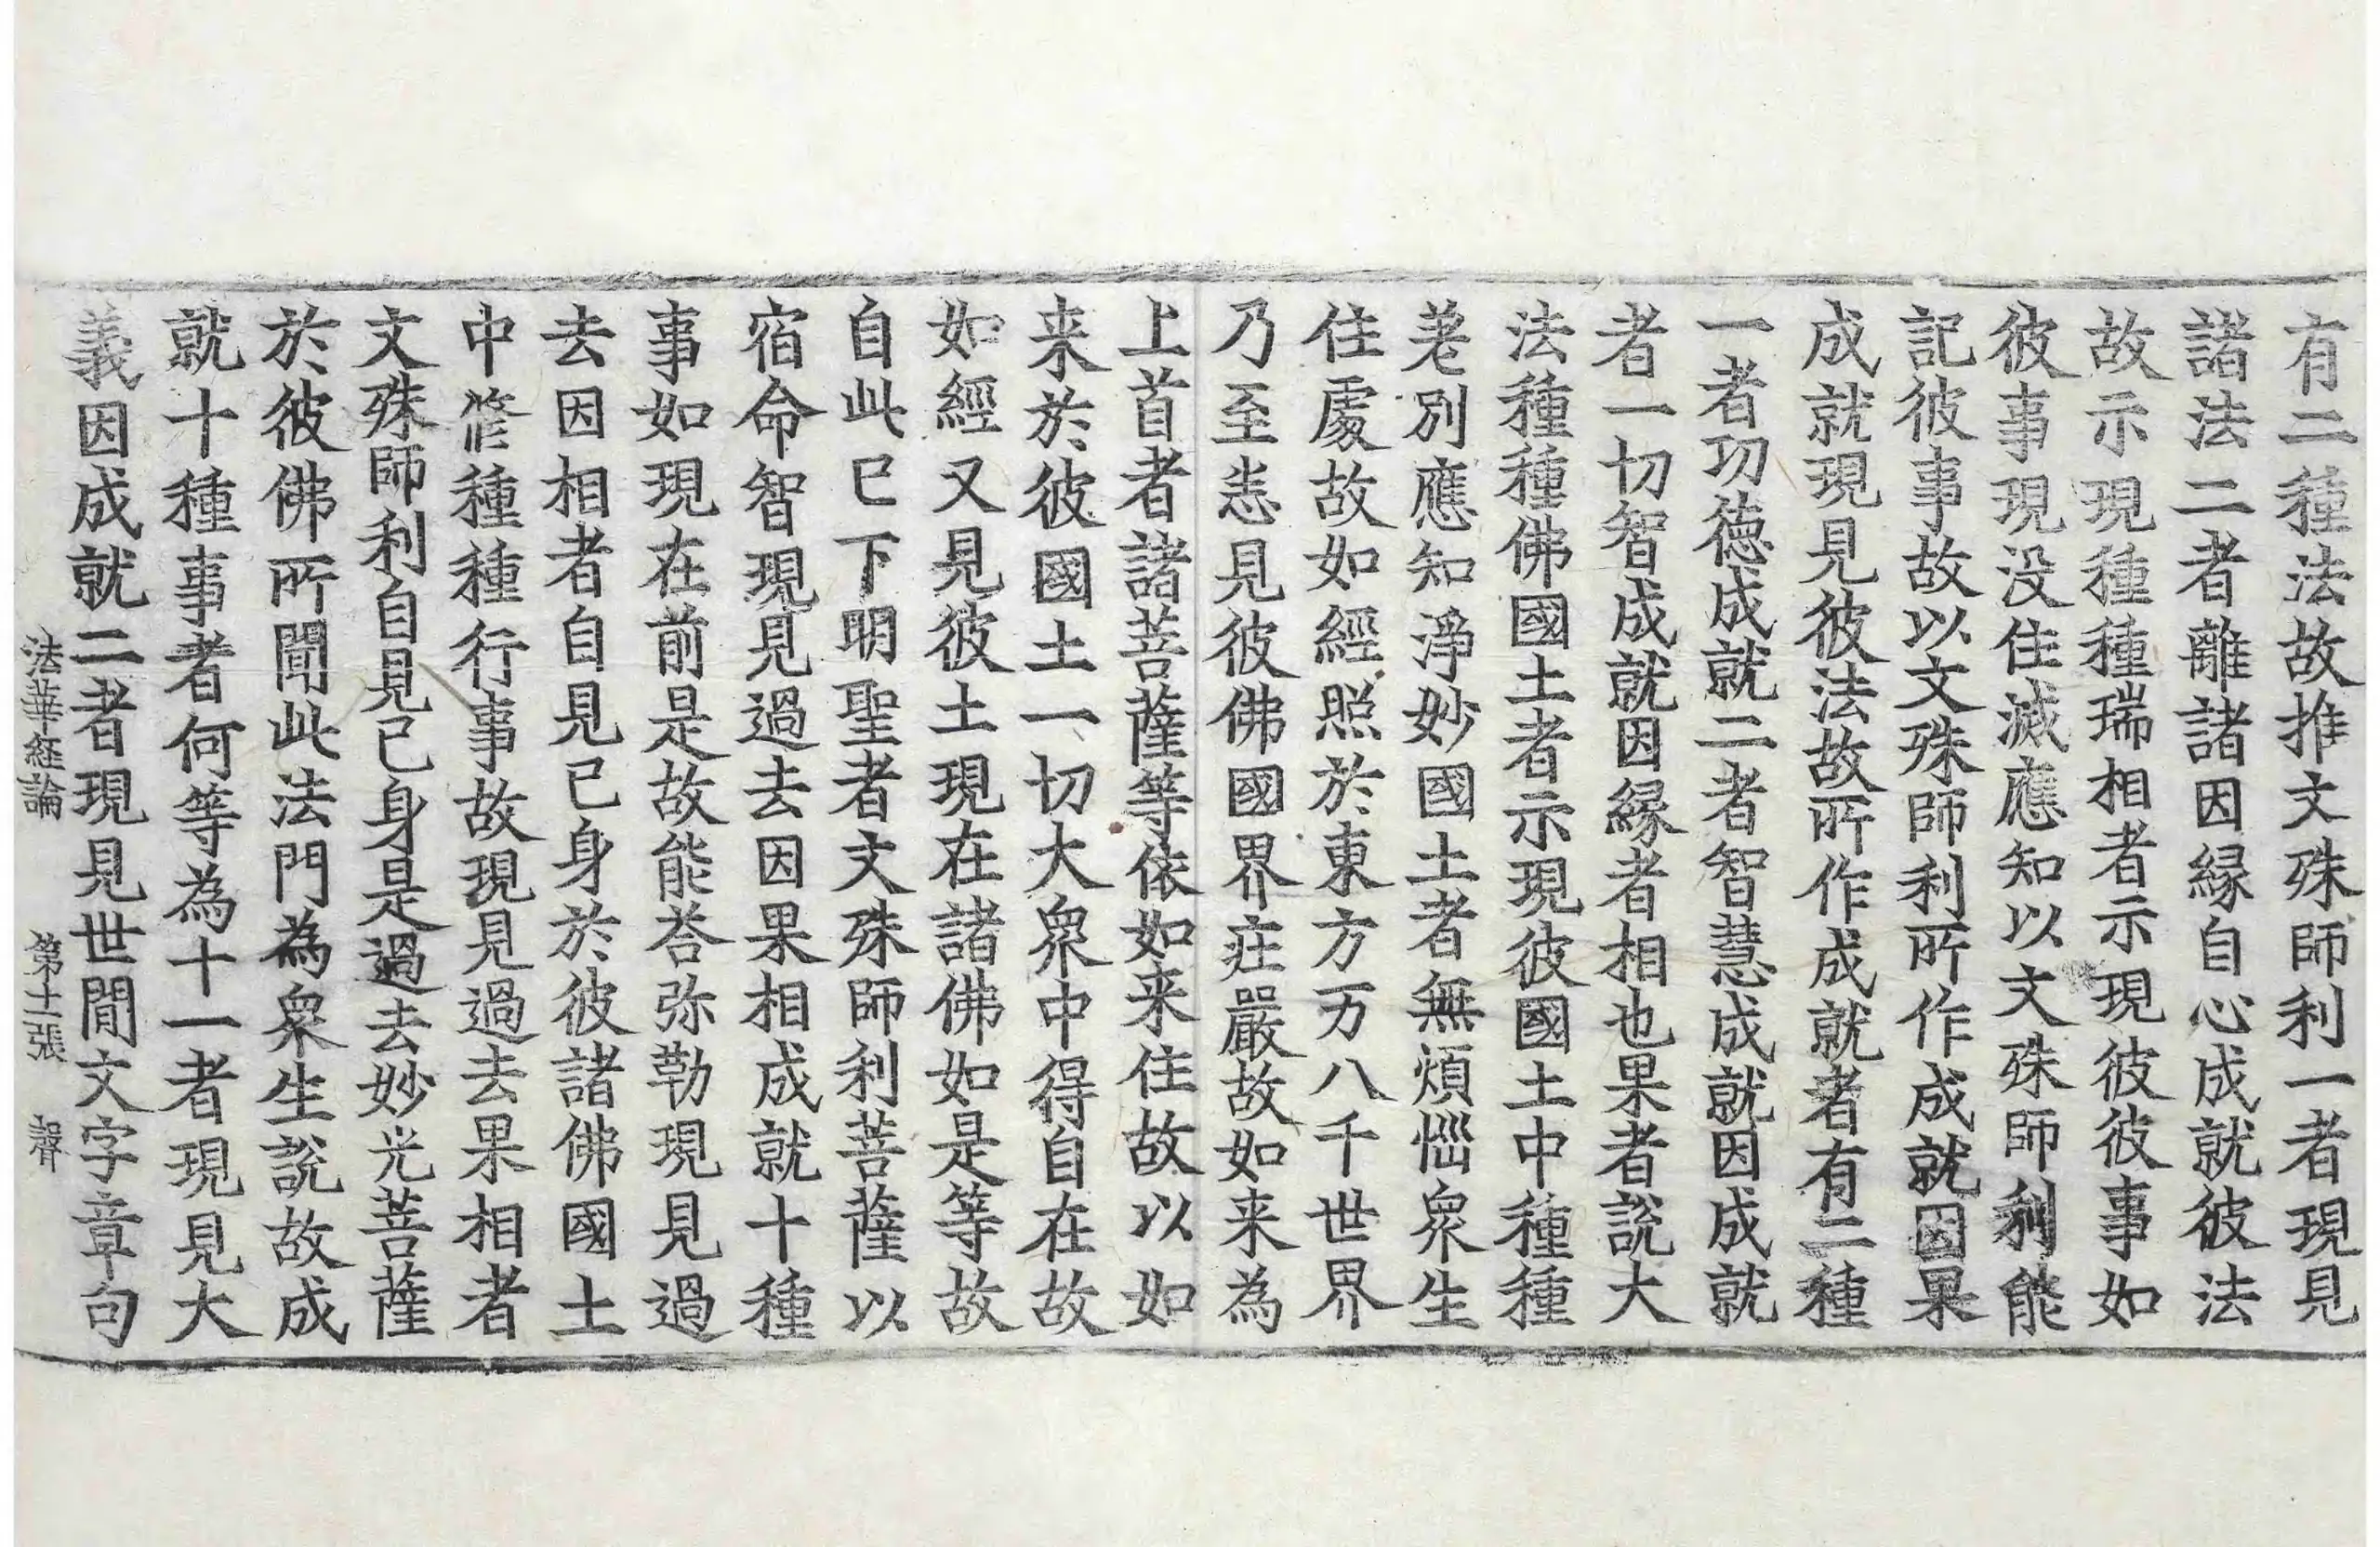 有二種法故推文殊師利一者現見
諸法二者離諸因縁自心成就彼法
故示現種種瑞相者示現彼彼事如
彼事現没住滅應知以文殊師利能
記彼事故以文殊師利所作成就因果
成就現見彼法故所作成就者有二種
一者功徳成就二者智慧成就因成就
者一切智成就因縁者相也果者說大
法種種佛國土者示現彼國土中種種
差別應知淨妙國土者無煩惱衆生
住處故如經照於東方万八千世界
乃至恙見彼佛國界庄嚴故如来為
上首者諸菩薩等依如来住故以如
来於彼國土一切大衆中得自在故
如經又見彼土現在諸佛如是等故
自此已下明聖者文殊師利菩薩以
宿命智現見過去因果相成就十種
事如現在前是故能荅弥勒現見過
去因相者自見己身於彼諸佛國土
中修種種行事故現見過去果相者
文殊師利自見己身是過去妙光菩薩
於彼佛所聞此法門為衆生說故成
就十種事者何等為十一者現見大
義因成就二者現見世間文字章句
法華経論 第十二張 聲